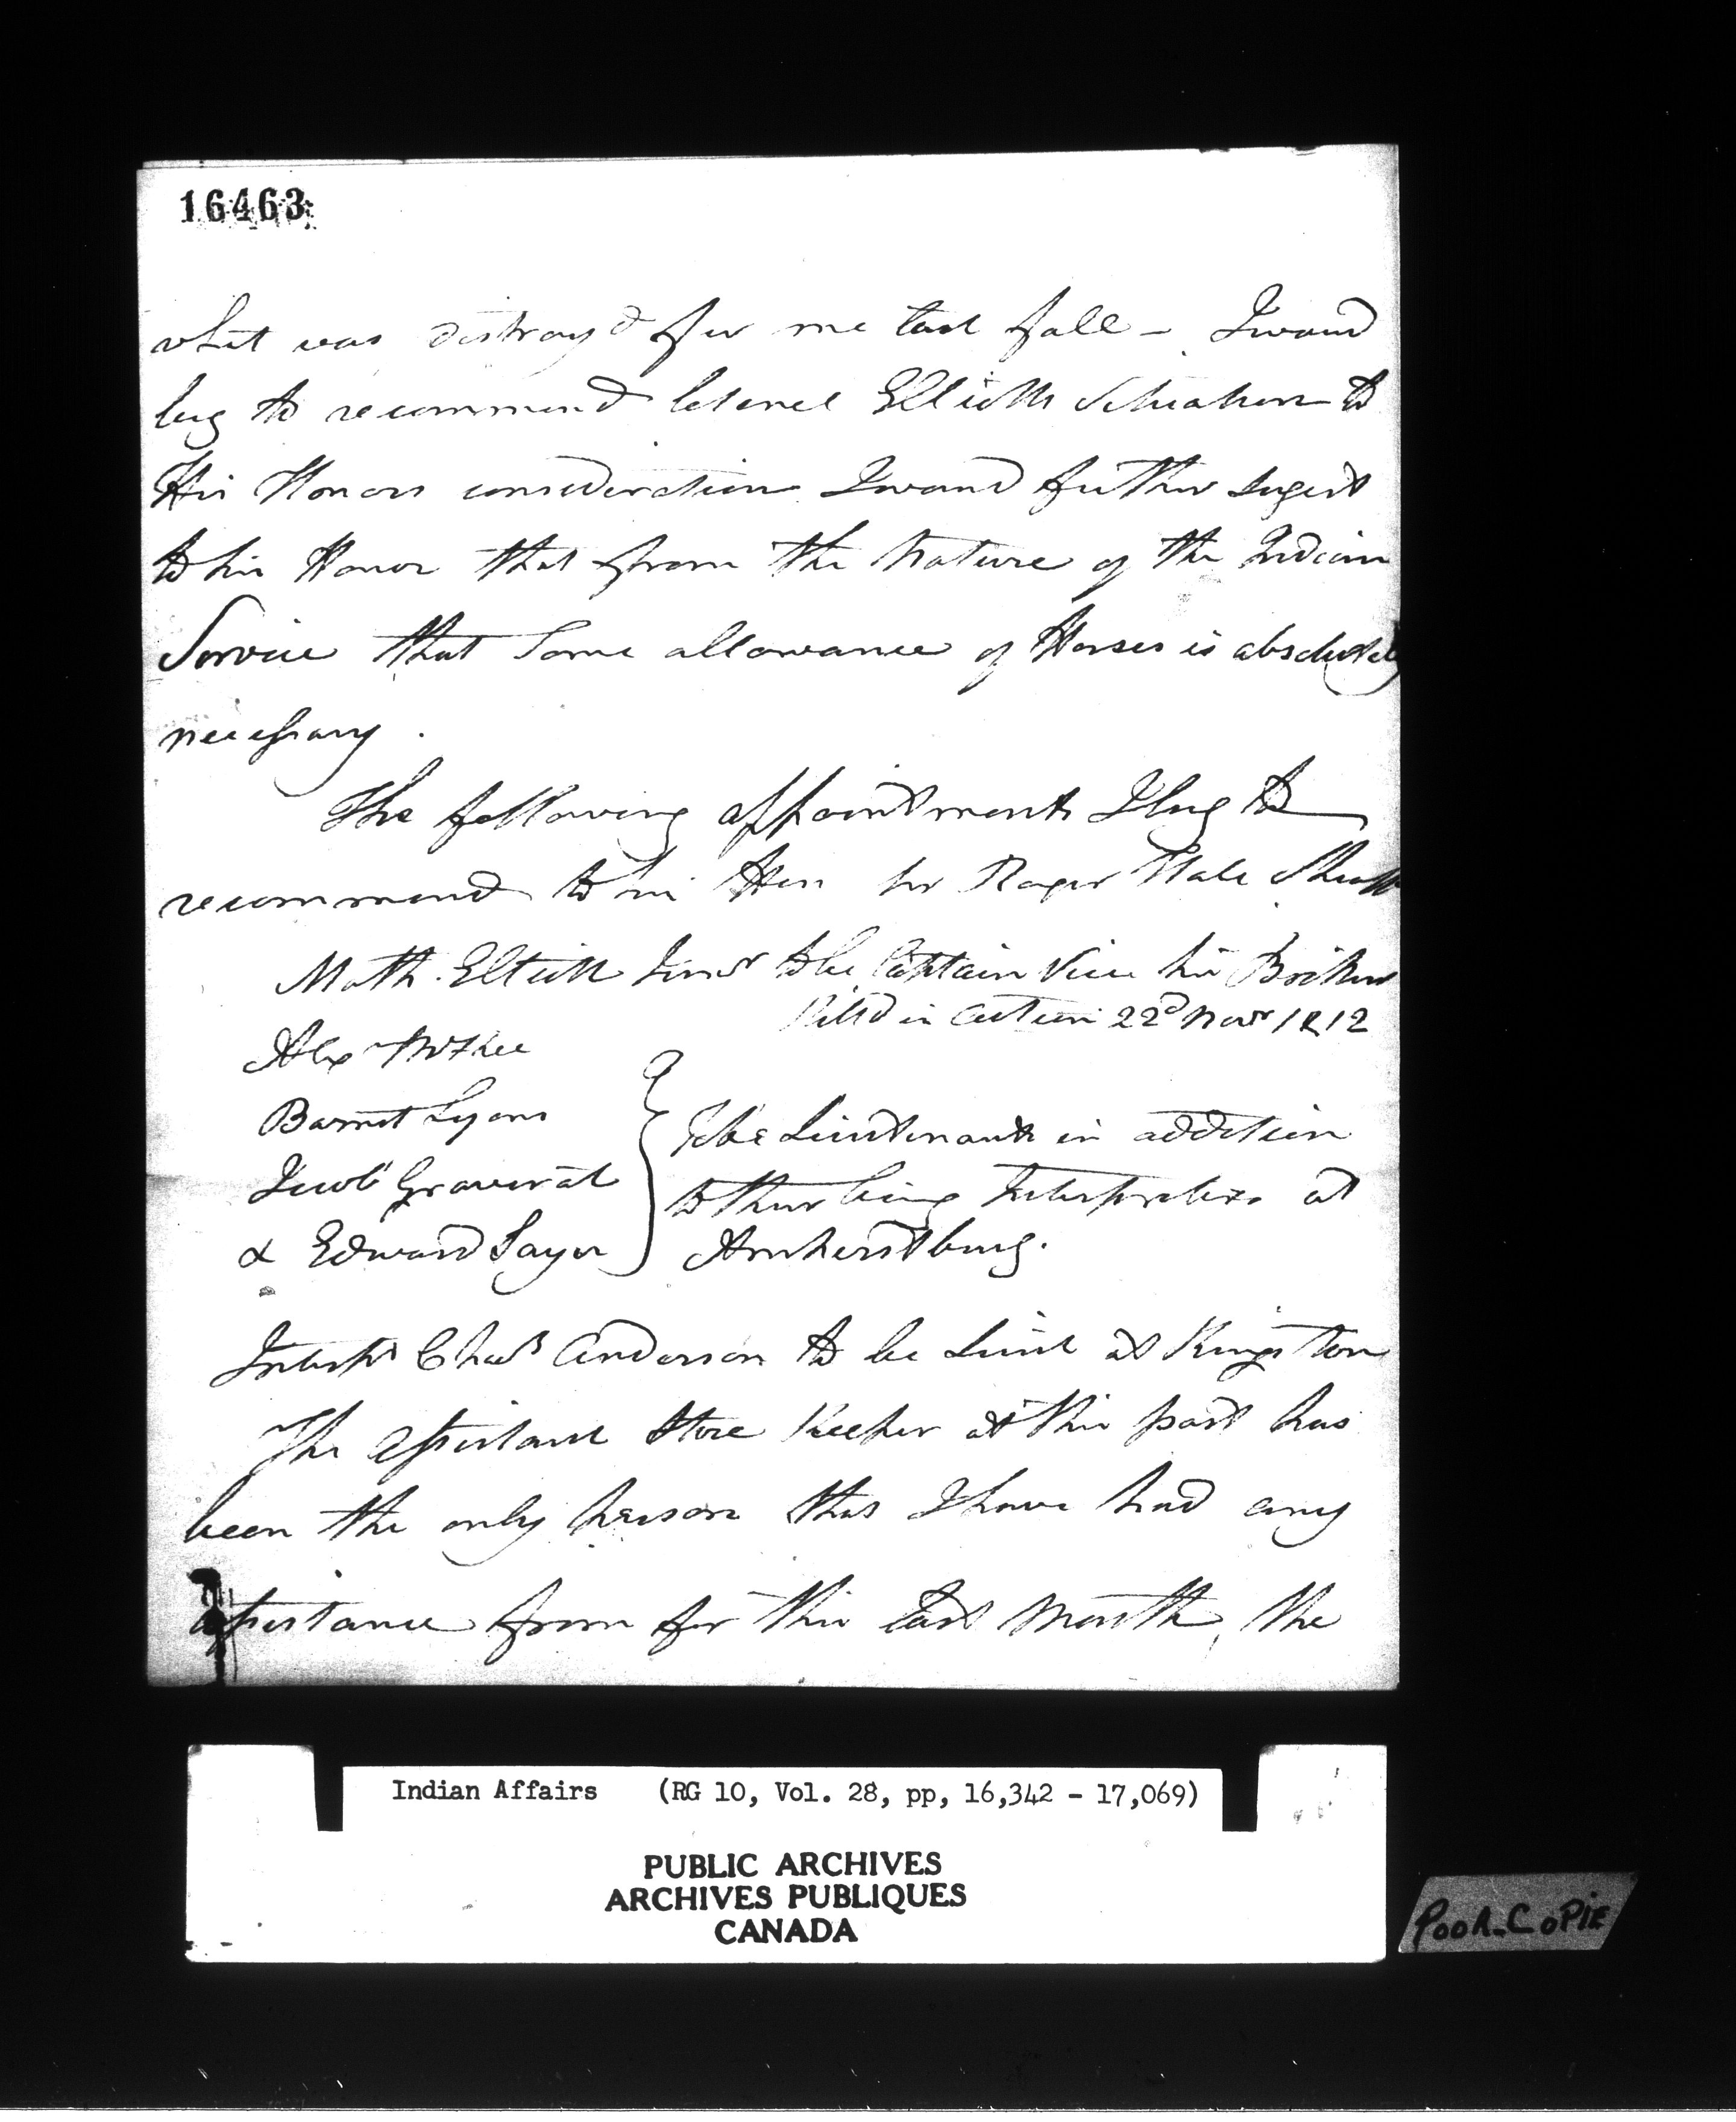 16463
what was distroy'd for me last fall – I woud
beg to recommend Colonel Elliotts Situation to
His Honors consideration I woud further sugest
to his Honor that from the Nature of the Indian
Service that Some allowance of Horses is absolutely
necessary.
The following appointments I beg to
recommend to his Hon Sir Roger Hale Sheaffe
Math. Elliott Junr to be Captain Vice his Brother
Killd in Action 22d Novr 1812
Alexr McKee
Barnet Lyons
Jacob Graverat
& Edward Sayer
To be Lieutenants in addition
to their being Interpreters at
Amherstburg.
Interpr Chas Anderson to be Lieut at Kingston
The assistant Store Keeper at this post has
been the only person that I have had any
assistance from for this last Month, the
Indian Affairs (RG 10, Vol. 28, pp, 16,342 - 17,069)
PUBLIC ARCHIVES
ARCHIVES PUBLIQUES
CANADA
POOR-COPIE